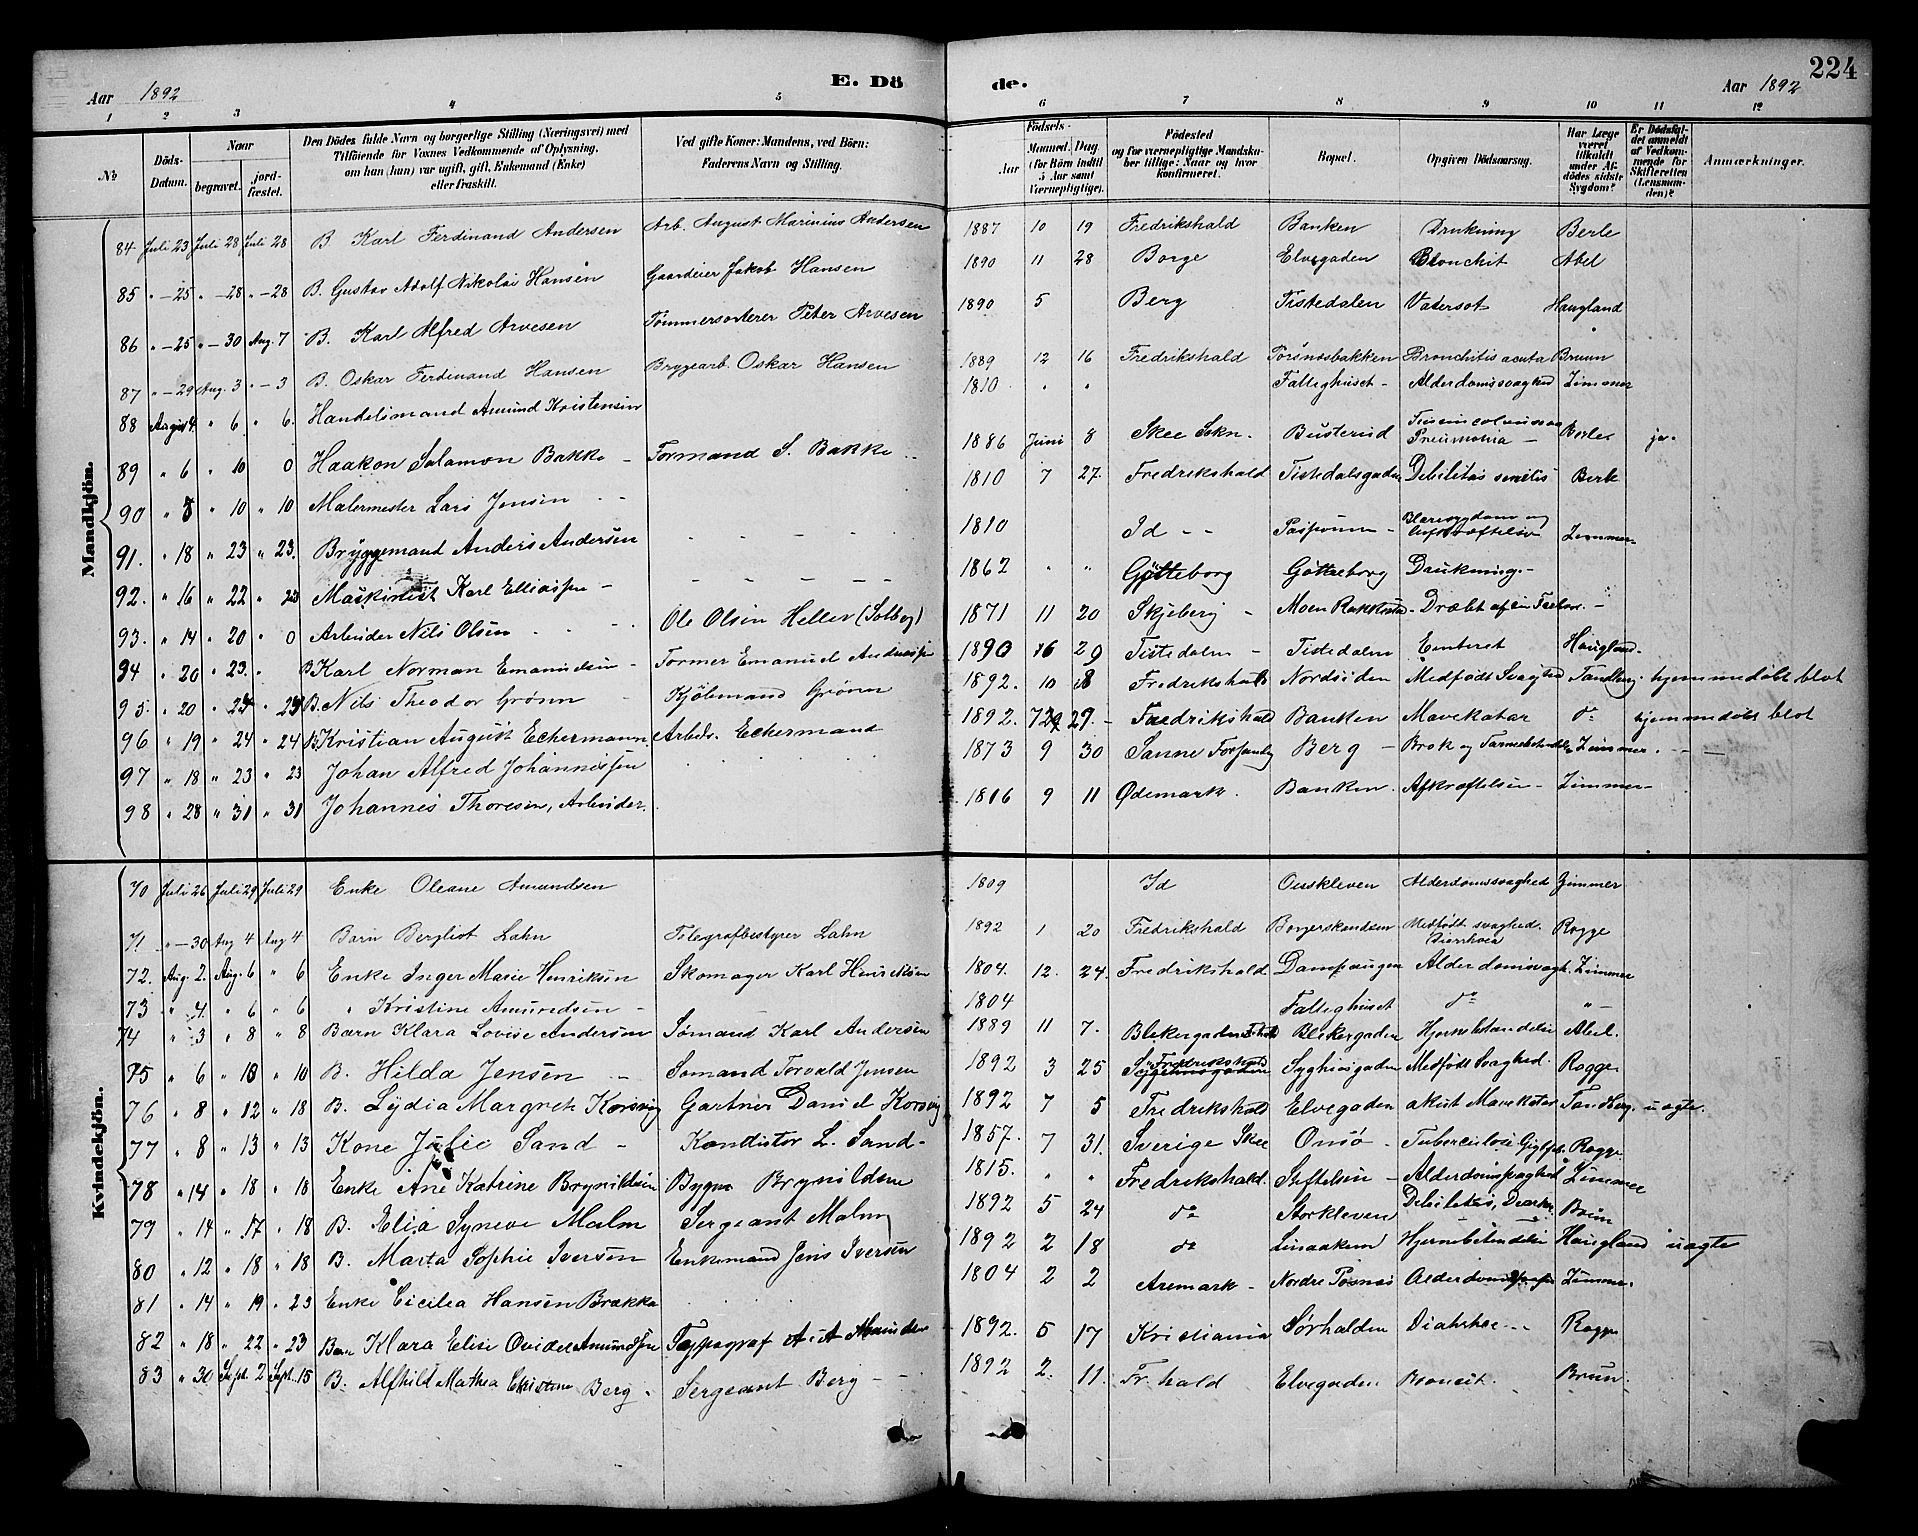 224
Aar 1892
E. Dö
de.
Aar 1892
1 2 3 4 5 6 7 8 9 10 11 12
No
Döds-Datum.
Naar
begravet.
jord-fæstet.
Den Dödes fulde Navn og borgerlige Stilling (Næringsvei) med
Tilföiende for Voxnes Vedkommende af Oplysning,
om han (hun) var ugift, gift, Enkemand (Enke)
eller fraskilt.
Ved gifte Koner: Mandens, ved Börn:
Faderens Navn og Stilling.
Födsels-
Aar
Maaned
Dag
(for Börn indtil
5 Aar samt
Værnepligtige).
Födested
og for værnepligtige Mandska-
ber tillige: Naar og hvor
konfirmeret.
Bopæl.
Opgiven Dödsaarsag.
Har Læge
været
tilkaldt
under Af-
dödes sidste
Sygdom?
Er Dödsfal-
det anmeldt
af Vedkom-
mende for
Skifteretten
(Lensman-
den)?
Anmærkninger.
Mandkjön.
84 Juli 23 Juli 28 Juli 28 B. Karl Ferdinand Andersen Arb. August Marinius Andersen 1887 10 19 Fredrikshald Banken Drukning Berle
85 " - 25 " - 28 " - 28 B. Gustav Adolf Nikolai Hansen Gaardeier Jakob Hansen 1890 11 28 Borge Elvegaden Bronchit Abel
86 " - 25 " - 30 Aug. 7 B. Karl Alfred Arvesen Tömmersorterer Peter Arvesen 1890 5 Berg Tistedalen Vatersot Haugland
87 " - 29 Aug. 3 " - 3 B. Oskar Ferdinand Hansen Bryggearb. Oskar Hansen 1889 12 16 Fredrikshald Torsnæsbakken Bronchitis acuta Bruun
88 August 4 " 6 " 6. Handelsmand Amund Kristensen 1810 " " Fattighuset - Alderdomssvaghed Zimmer
89 " 6 " 10 0 Haakon Salamon Bakke - Formand S. Bakke 1886 Juni 8 Skee Sokn. Busterud Pneumonia - Berle ja.
90 " 8 " 10 " 10 Malermester Lars Jensen 1810 7 27. Fredrikshald Tistedalsgaden Debilitas senilis Berle
91. " 18 " 23 " 23. Bryggemand Anders Andersen 1810 Id Paspvum - Blæresygdom og Zimmer
92. " 16 " 22 " Maskinist Karl Elliassen - 1862 " " Gøtteborg Gøtteborg Drukning. -
93. " 14 " 20 " 0 Arbeider Nils Olsen Ole Olsen Heller (Solbg) 1871 11 20 Skjeberg - Moen Rakkestad - Dræbt af en -
94 " 20 " 23. " B Karl Norman Emanuelsen - Former Emanuel Andreassen 1890 6 29 Tistedalen - Tistedalen Enterit Haugland.
95. " 20 " 24 " 24 B. Nils Theodor Grönn Kjöbmand Grönn 1892. 10 8 Fredrikshald Nordsiden Medfödt Svaghed Tandberg. hjemmedöbt blot
96 " 19 " 24 " 24 B. Kristian August Eckermann. Arbdr. Eckermand 1892. 7 29. - Fredrikshald Banken Mavekatar do hjemmedöbt blot
97 " 18 " 23 " 23 Johan Alfred Johannessen 1873 9 30 Sanne Forsamly Berg - Brok og Zimmer.
98 " 28 " 31 " 31 Johannes Thoresen, Arbeider. 1816 9 11 Ødemark. Banken. Afkræftelse - Zimmer -
Kvindekjön.
70 Juli 26 Juli 29 Juli 29 Enke Oleane Amundsen 1809 Id Ouskleven Alderdomssvaghed Zimmer
71 " - 30 Aug 4 Aug 4 Barn Bergliot Lahn Telegrafbestyrer Lahn 1892 1 20 Fredrikshald Borgerskandsen Medfödt svaghed. Diarrhoia Rogge
72. Aug. 2. Aug. 6 " 6 Enke Inger Marie Henriksen Skomager Karl Henriksen 1804. 12. 24. Fredrikshald Dampvaugen Alderdomsvagh. Zimmer
73 " 4 " 6 " 6 " Kristine Amundsen - 1804 Fattighuset do " -
74 " 3 " 8 " 8 Barn Klara Lovise Andersen Sömand Karl Andersen 1889 11 7. Blekergaden Fhald Blekergaden Hjernebetændelse Abel.
75 " 6 " 10 " 10 B. Hilda Jensen Sömand Torvald Jensen 1892 3 25 Fredrikshald Syghusgaden Medfödt Svaghed. Rogge
76 " 8 " 12 " 18 B. Lydia Margrete Korsvig Gartner Daniel Korsvig 1892 7 5 Fredrikshald Elvegaden akut Mavekatar Tandberg. uægte.
77 " 8 " 13 " 13 Kone Julie Sand - Konditor L. Sand - 1857. 7 31. Sverige Skee Onsö - Tuberculose Rogge.
78 " 14 " 18 " 18 Enke Ane Katrine Brynildsen Bygm Brynildsen 1815. " " Fredrikshald. Stiftelsen - Alderdomssvaghed Zimmer
79 " 14 " 17 " 18 B. Elia Syneve Malm Sergeant Malm 1892 5 24 do Storkleven Debilitas, Bruun
80 " 12 " 18 " 18 B. Marta Sophie Iversen Enkemand Jens Iversen 1892 2 18 do Hjernebetændelse Haugland uægte
81 " 14 " 19 " 23 Enke Cicilia Hansen Brække 1804 2 2 Aremark - Nordre Zimmer.
82 " 18 " 22 " 23 Barn Klara Elise Ovidel Amundsen Typograf A. Amundsen 1892. 5 17 Kristiania Sörhalden Rogge
83 " 30 Sept. 2 Sept. 15 B. Alfhild Mathea Christine Berg. Sergeant Berg - 1892 2. 11. Fr.hald Elvegaden Bronchit. Bruun.